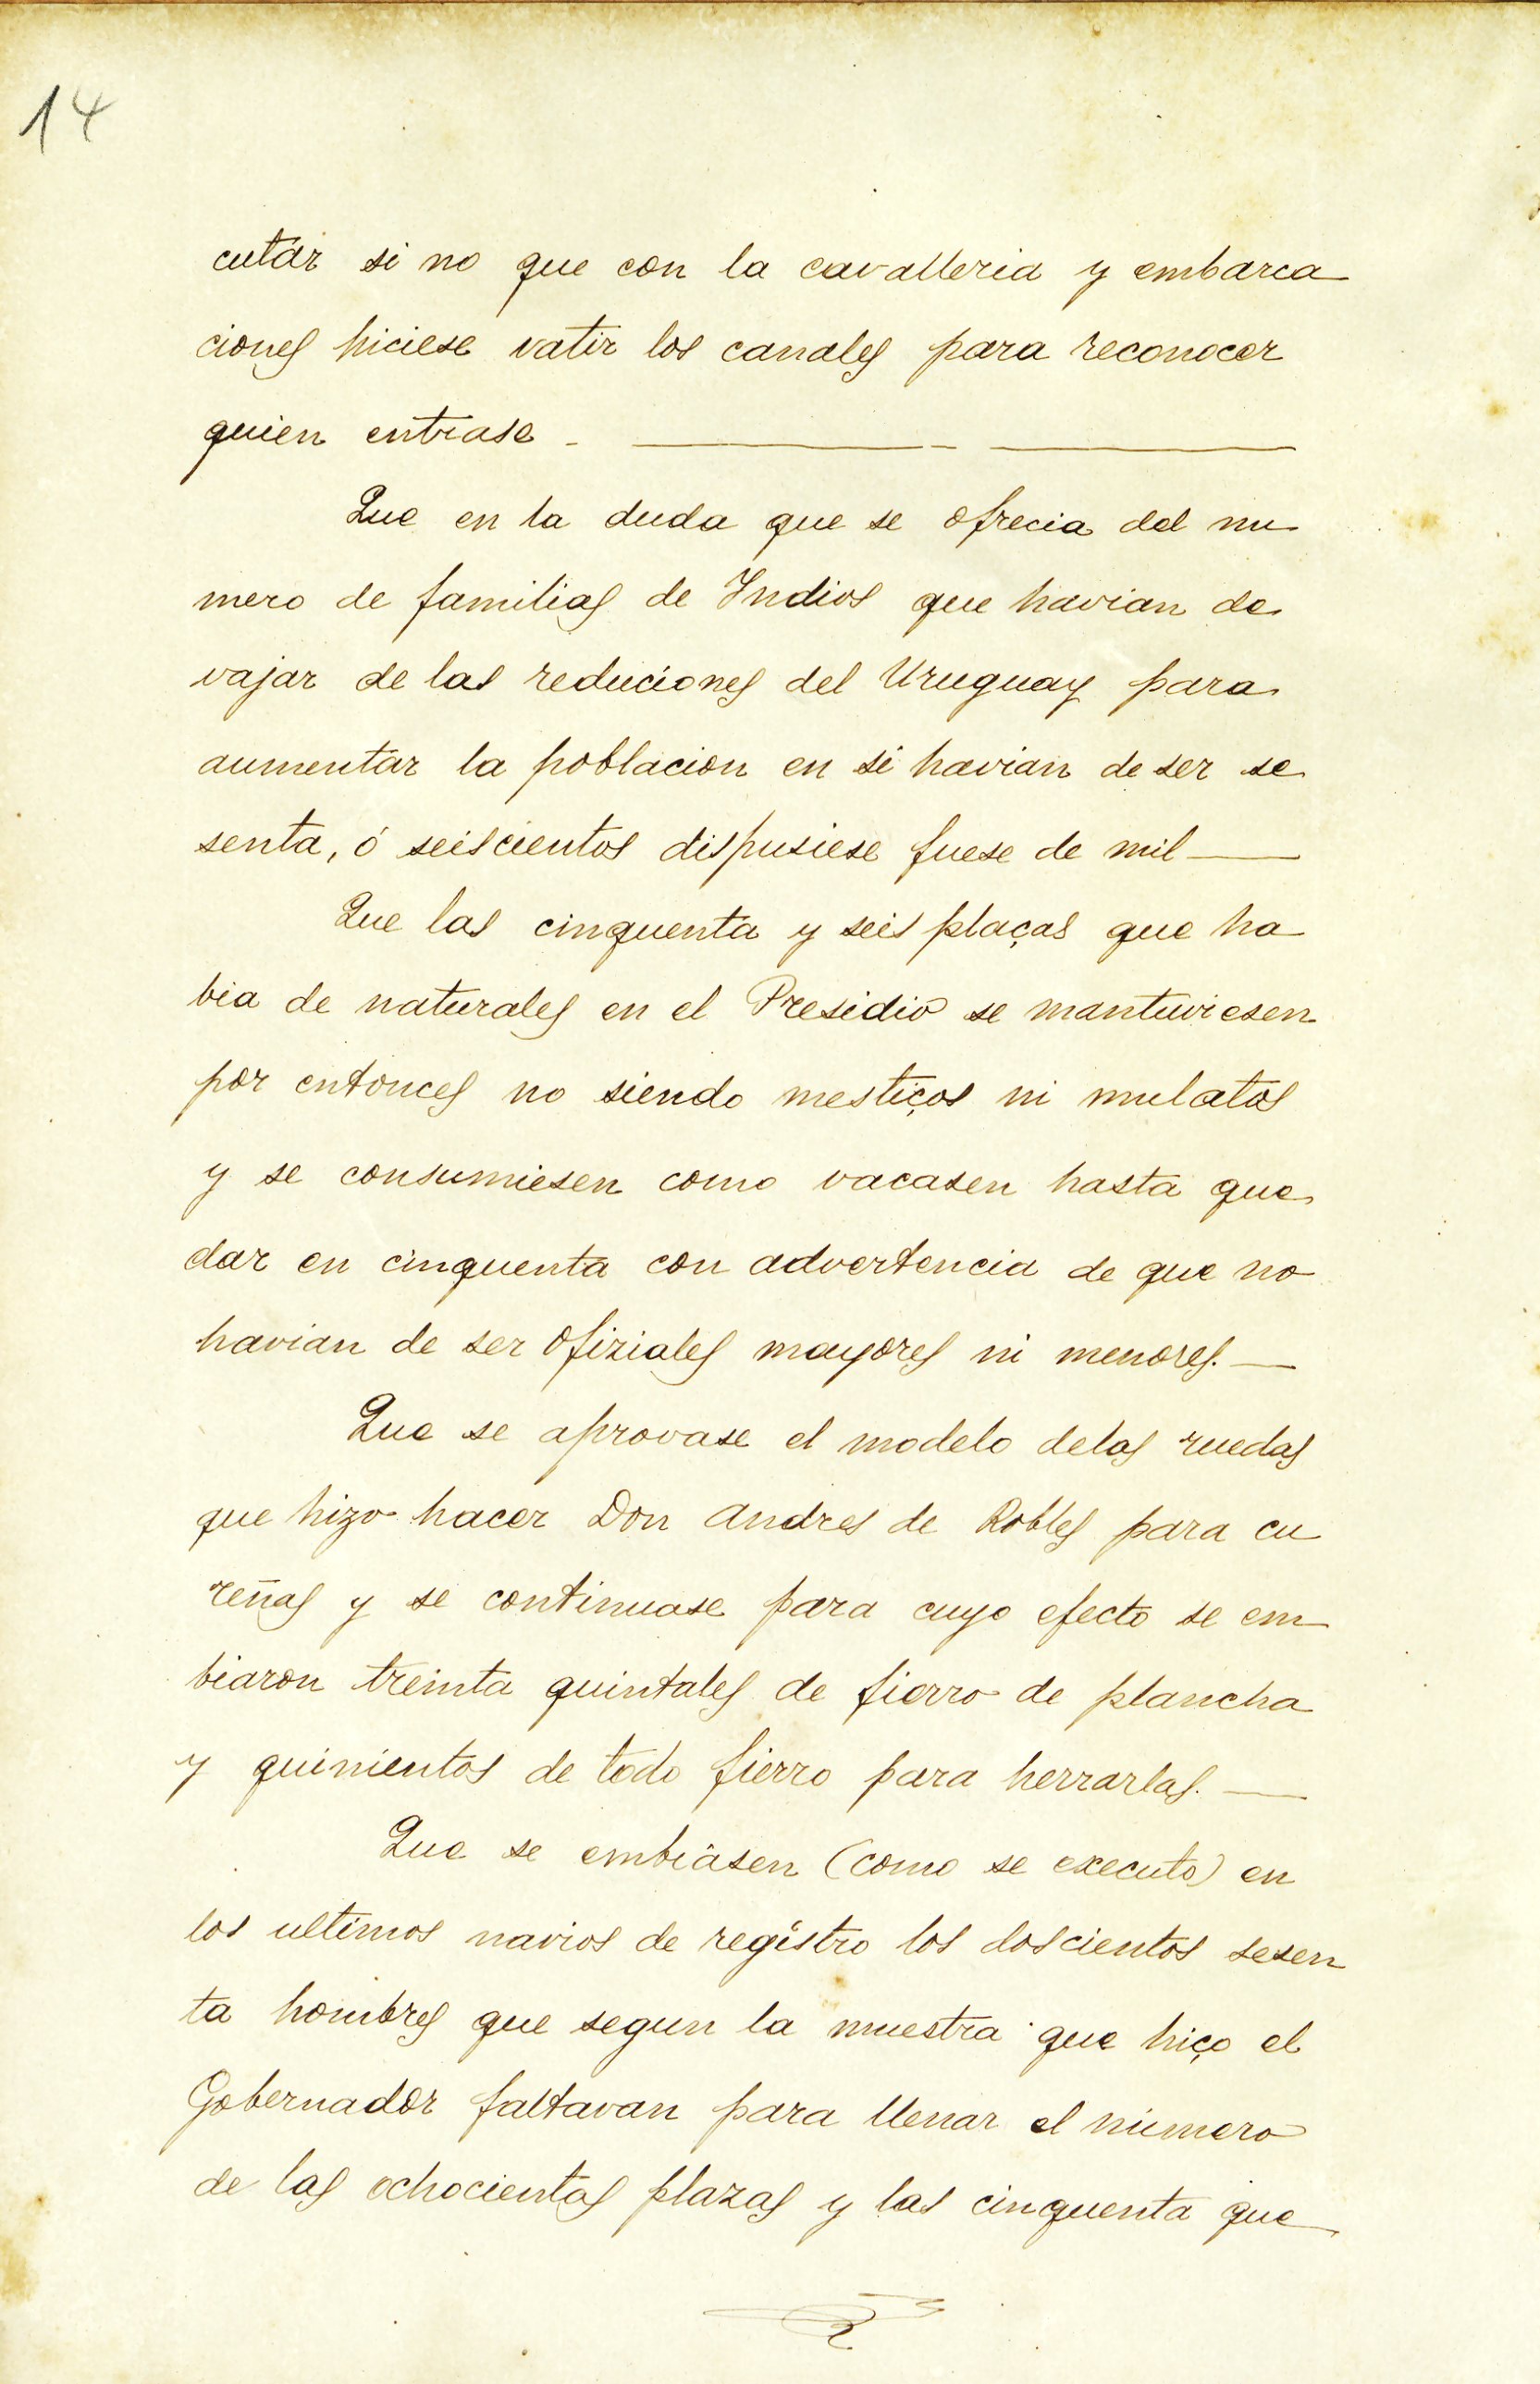 14
cutar si no que con la cavalleria y embarca
ciones hiciese vatir los canales para reconocer
quien entrase - ——— - ———
Que en la duda que se ofrecia del nu
mero de familias de Indios que havian de
vajar de las reduciones del Uruguay para
aumentar la poblacion en si havian de ser se
senta, ó seiscientos dispusiese fuese de mil ——
Que las cinquenta y seis plaças que ha
bia de naturales en el Presidio se mantuviesen
por entonces no siendo mestiços ni mulatos
y se consumiesen como vacasen hasta que
dar en cinquenta con advertencia de que no
havian de ser ofiziales mayores ni menores. —
Que se aprovase el modelo delas ruedas
que hizo hacer Don Andres de Robles para cu
reñas y se continuase para cuyo efecto se em
biaron treinta quintales de fierro de plancha
y quinientos de todo fierro para herrarlas. —
Que se embiásen (como se executo) en
los ultimos navios de registro los doscientos sesen
ta hombres que segun la muestra que hiço el
Gobernador faltavan para llenar el número
de las ochocientas plazas y las cinquenta que